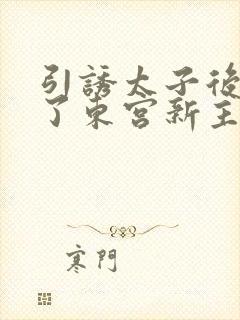 引誘太子後
了東宮新主
寒門